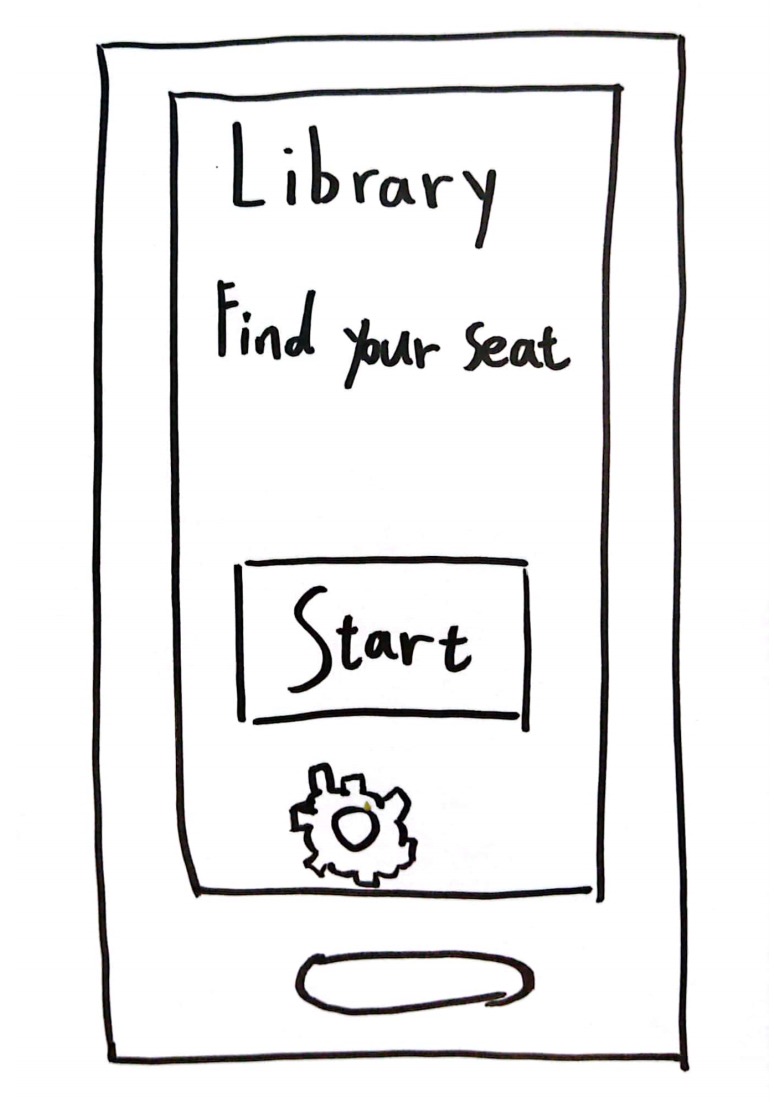 Library
Find your seat
Start